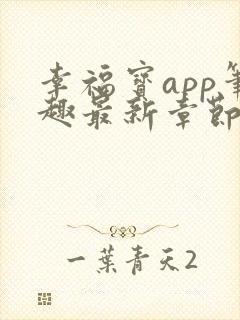 幸福宝app筆
趣最新章節
一葉青天2